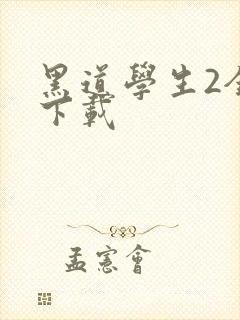 黑道學生2全
下載
孟憲會